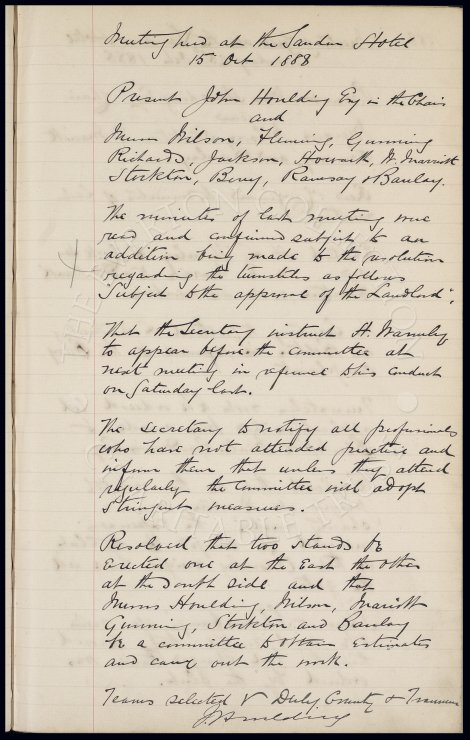 Meeting held at the Sandon Hotel
15 Oct 1888
Present John Houlding Esq in the Chair
and
Messrs Wilson, Fleming, Gunning
Richards, Jackson, Howarth, W. Marriott
Stockton, Berry, Ramsay & Barclay.
The minutes of last meeting were
read and confirmed subject to an
addition being made to the resolution
regarding the turnstiles as follows
"Subject to the approval of the Landlord".
That the Secretary instruct H. Warmby
to appear before the Committee at
next meeting in reference to his conduct
on Saturday last.
The secretary to notify all professionals
who have not attended practice and
inform them that unless they attend
regularly the Committee will adopt
Stringent measures.
Resolved that two stands be
Erected one at the East the other
at the South side and that
Messrs Houlding, Wilson, Marriott
Gunning, Stockton and Barclay
be a committee to obtain Estimates
and carry out the work.
Teams selected V Derby County &
J Houlding